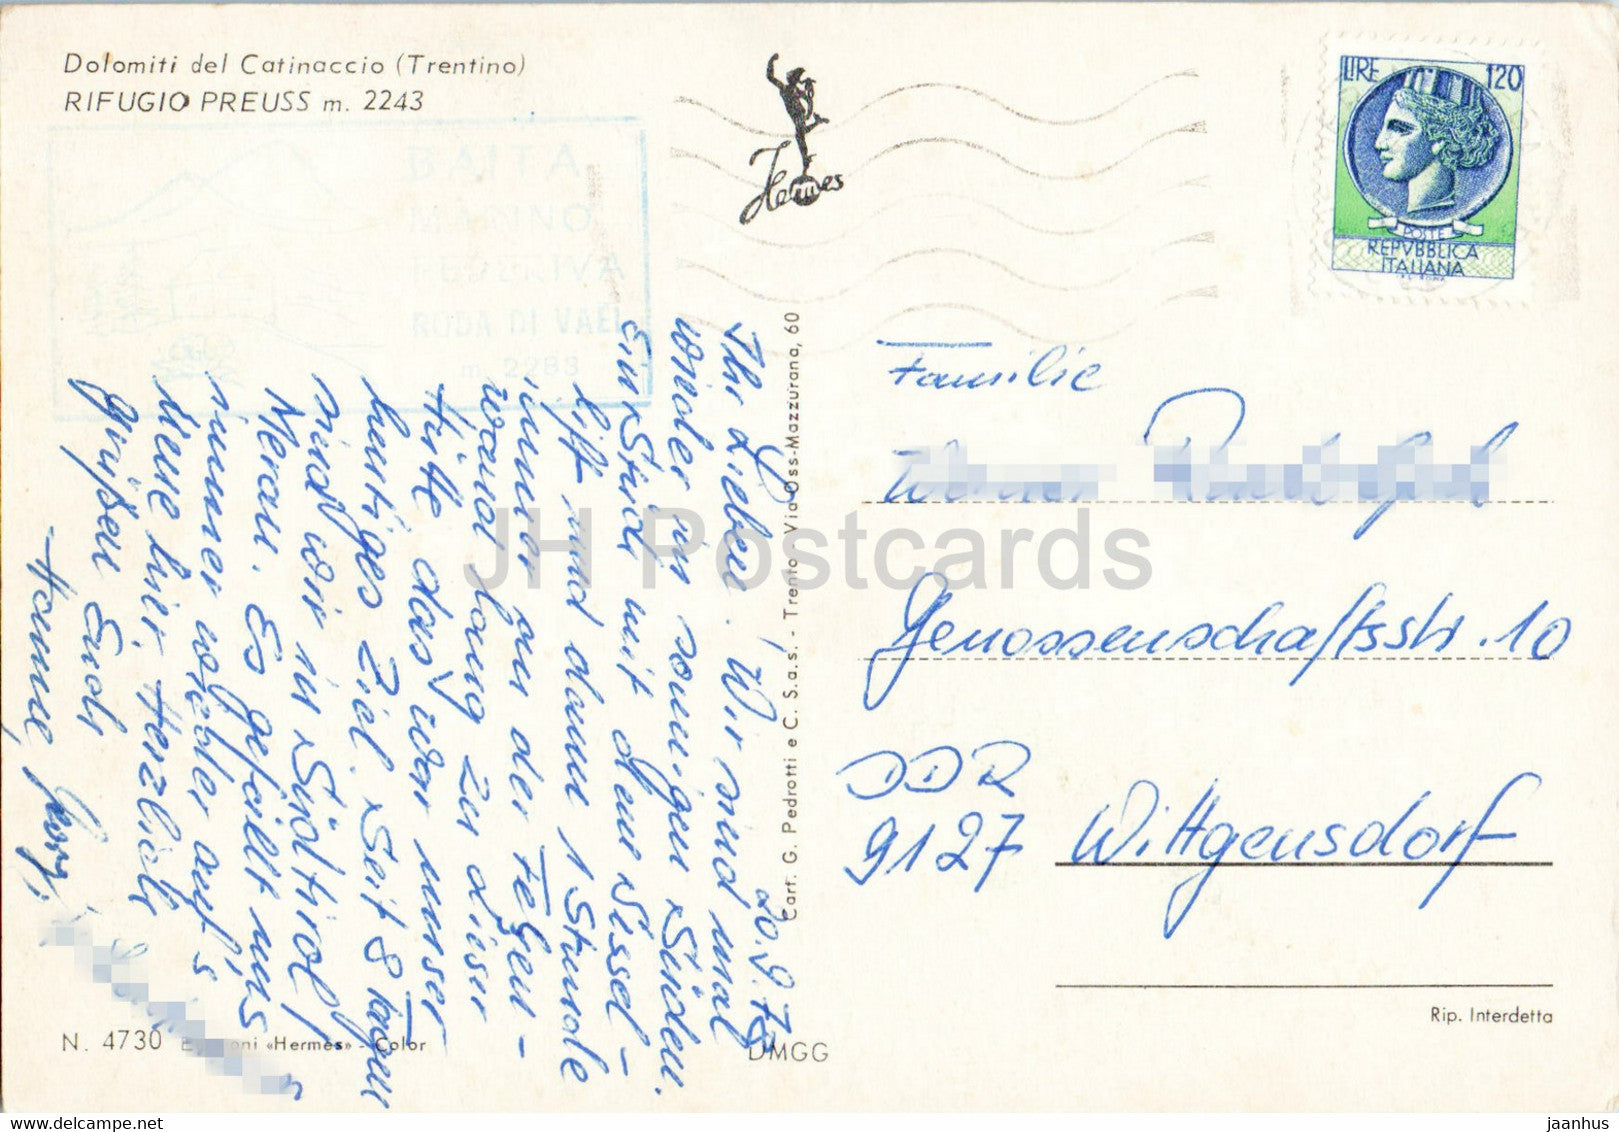 Dolomiti del Catinaccio (Trentino)
RIFUGIO PREUSS m. 2243
BAITA
MARINO
PEDERIVA
RODA DI VAEL
m. 2283
Hermes
LIRE 120
POSTE
REPVBBLICA
ITALIANA
20.9.78
Ihr Lieben! Wir sind mal
wieder im sonnigen Süden.
Ein Stück mit dem Sessel-
lift und dann 1 Stunde
immer an der Felsen-
wand lang zu dieser
Hütte das war unser
heutiges Ziel. Seit 8 Tagen
sind wir in Südtirol /
Meran. Es gefällt uns
immer wieder auf's
Neue hier. Herzliche
Grüßen Euch
Hanne,
Familie
Werner
Genossenschaftsstr. 10
DDR
9127 Wittgensdorf
Cart. G. Pedrotti e C. S.a.s. - Trento - Via Oss-Mazzurana, 60
N. 4730 Edizioni «Hermes» - Color
DMGG
Rip. Interdetta
JH Postcards
jaanhus